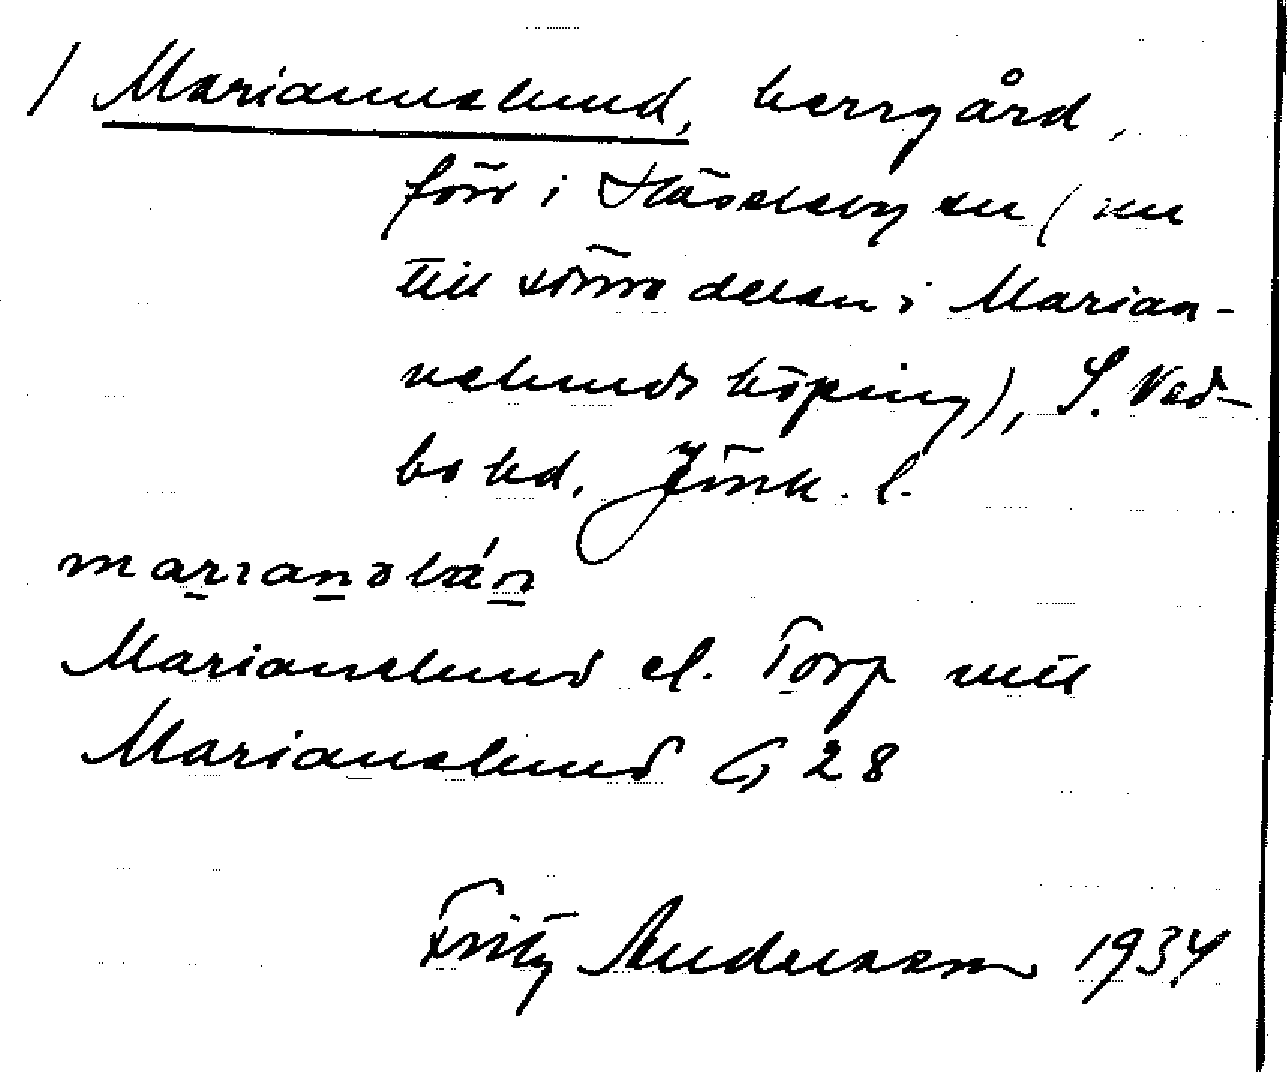 / Mariannelund, herrgård,
förr i Hässleby sn (nu
till större delen i Marian-
nelunds köping), S. Ved-
bo hd, Jönk. l.
marıanəlɯ́n
Marianelund el. Torp intill
Marianelund G 28
Fritz Anderson 1934